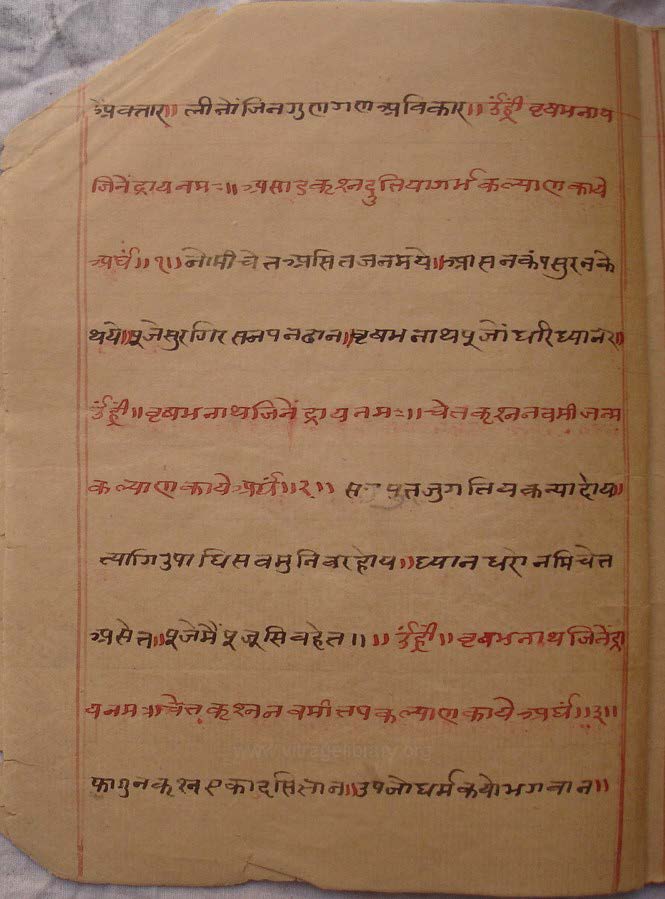 ॐवक्तार॥ लीनोंजिनगुणगणअविकार॥ उंह्रीं वृषभनाथ
जिनेंद्रायनमः॥ असाडकृश्नदुतियागर्भकल्याणकाये
अर्घं॥१॥नोमीचेतअसितजनमये॥आसनकंपसुरनके
थये॥पूजेसुरगिरसनपनठान॥वृषभनाथपूजोंधरिध्यान॥
उंह्रीं॥वृषभनाथजिनेंद्रायनमः॥चेतकृश्ननवमीजन्म
कल्याणकायेअर्घं॥२॥ जुगतियकन्यादोय॥
त्यागिउपाधिसवमुनिवरहोय॥ध्यानधरोनमिचेत
असेत॥पूजेमैंपूजूसिवहेत॥॥उंह्रीं॥वृषभनाथजिनेंद्रा
यनमः॥चेतकृश्ननवमीतपकल्याणकायेअर्घं॥३॥
www.vitragelibrary.org
फागुनकृश्नएकादसिसान॥उपजोधर्मकयोभगवान॥